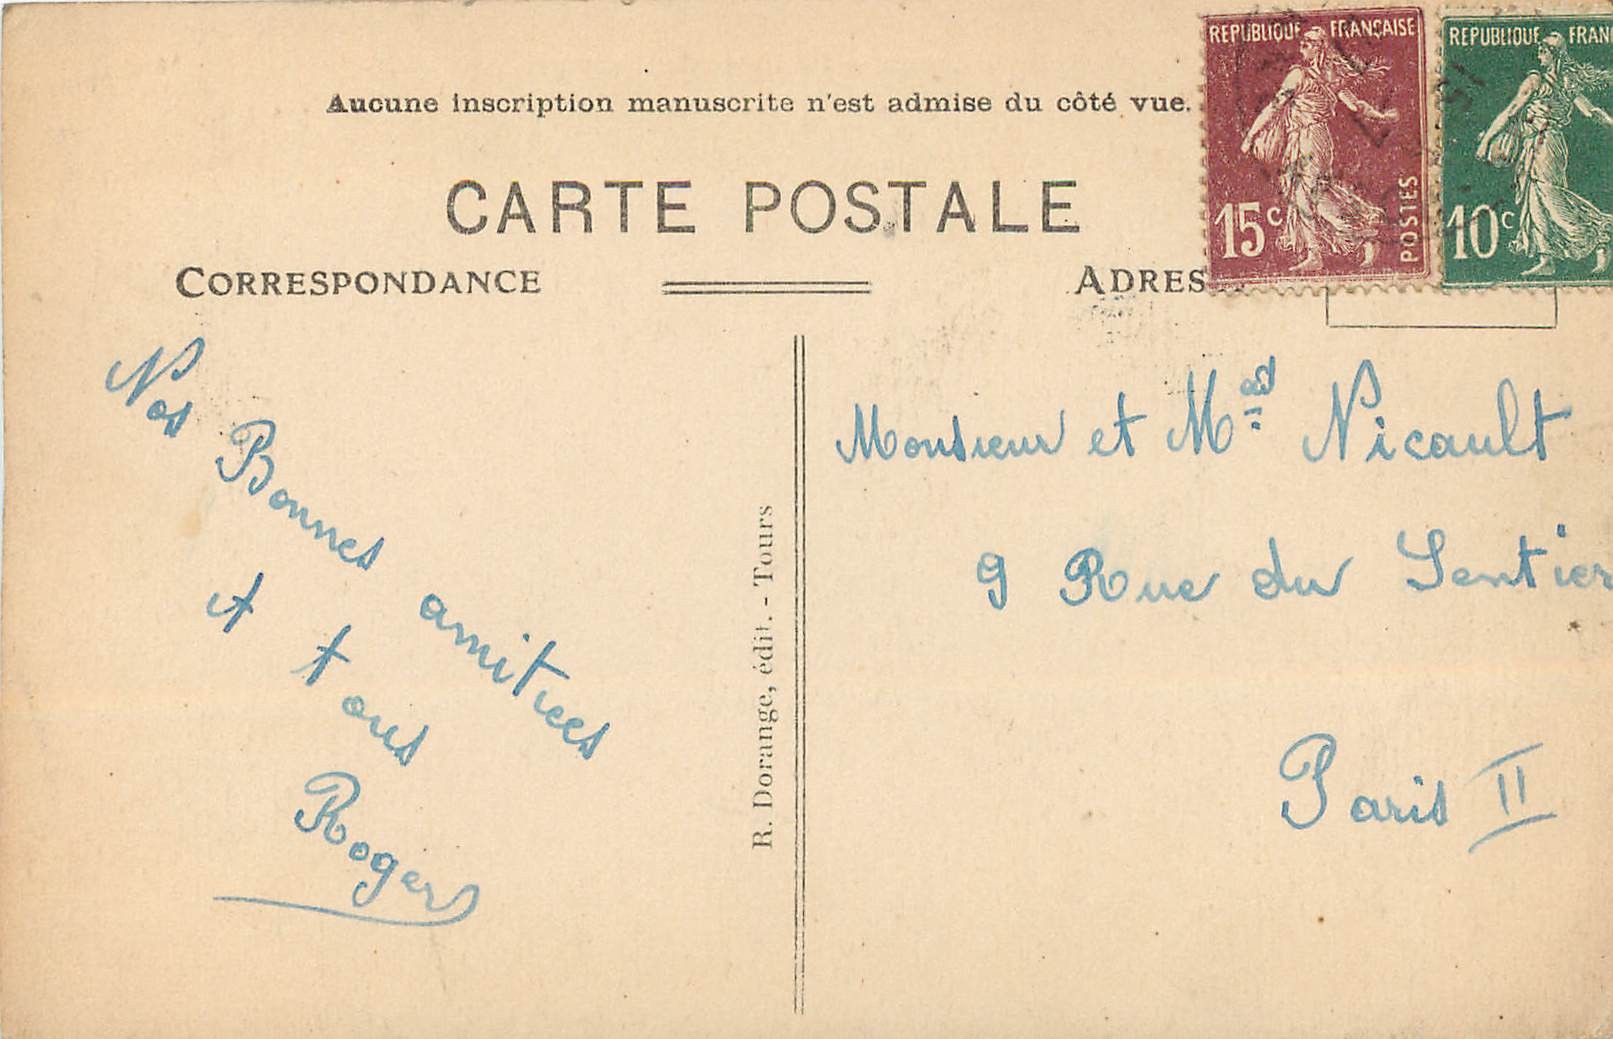 REPUBLIQUE FRANÇAISE
15c
POSTES
REPUBLIQUE FRAN
10c
Aucune inscription manuscrite n'est admise du côté vue.
CARTE POSTALE
CORRESPONDANCE
ADRES
Nos Bonnes amitiees
A tous
Roger
R. Dorange, édit. - Tours
Monsieur et Mad Nicault
9 Rue du Sentier
Paris II